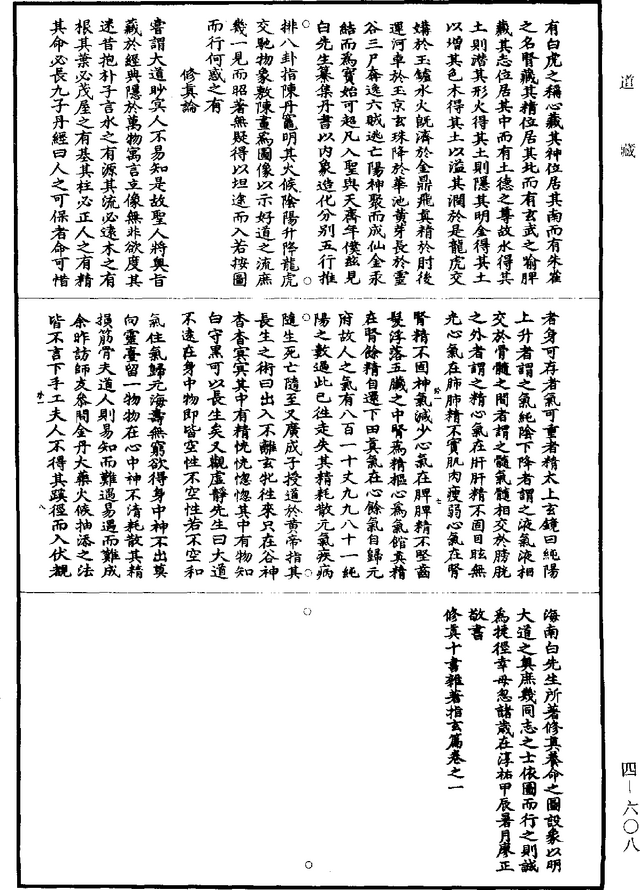 道藏
有白虎之稱心藏其神位居其南而有朱雀
之名腎藏其精位居其北而有玄武之喻脾
藏其志位居其中而有土德之尊故水得其
土則潛其形火得其土則隱其明金得其土
以增其色木得其土以溢其潤於是龍虎交
媾於玉鑪水火旣濟於金鼎飛眞精於肘後
運河車於玉京玄珠降於華池黃芽長於靈
谷三尸奔逸六賊逃亡陽神聚而成仙金汞
結而爲寶始可超凡入聖與天齊年僕玆見
白先生纂集丹書以內象造化分別五行推
排八卦指陳丹竈明其火候陰陽升降龍虎
交馳物象敷陳畫爲圖像以示好道之流庶
幾一見而昭著無疑得以坦途而入若按圖
而行何惑之有
修眞論
嘗謂大道眇冥人不易知是故聖人將輿旨
藏於經典隱於萬物寓言立像無非欲度其
迷昔抱朴子言水之有源其流必遠木之有
根其葉必茂屋之有基其柱必正人之有精
其命必長九子丹經曰人之可保者命可惜
者身可存者氣可重者精太上玄鏡曰純陽
上升者謂之氣純陰下降者謂之液氣液相
交於骨髓之間者謂之髓氣髓相交於膀胱
之外者謂之精心氣在肝肝精不固目眩無
光心氣在肺肺精不實肌肉瘦弱心氣在腎
腎精不固神氣減少心氣在脾脾精不堅齒
髮浮落五臟之中腎爲精樞心爲氣館眞精
在腎餘精自還下田眞氣在心餘氣自歸元
府故人之氣有八百一十丈九九八十一純
陽之數過此已往走失其精耗散元氣疾病
隨生死亡隨至又廣成子授道於黃帝指其
長生之術曰出入不離玄牝往來只在谷神
杳杳冥冥其中有精恍恍惚惚其中有物知
白守黑可以長生矣又觀虛靜先生曰大道
不遠在身中物即皆空性不空性若不空和
氣住氣歸元海壽無窮欲得身中神不出莫
向靈臺留一物物在心中神不清耗散其精
損筋骨夫道人則易知而難遇易遇而難成
余昨訪師友叅問金丹大藥火候抽添之法
皆不言下手工夫人不得其蹊徑而入伏覩
海南白先生所著修眞養命之圖設象以明
大道之奧庶幾同志之士依圖而行之則誠
爲捷徑幸毋忽諸歲在淳祐甲辰暑月廖正
敬書
修眞十書雜著指玄篇卷之一
四—六〇八